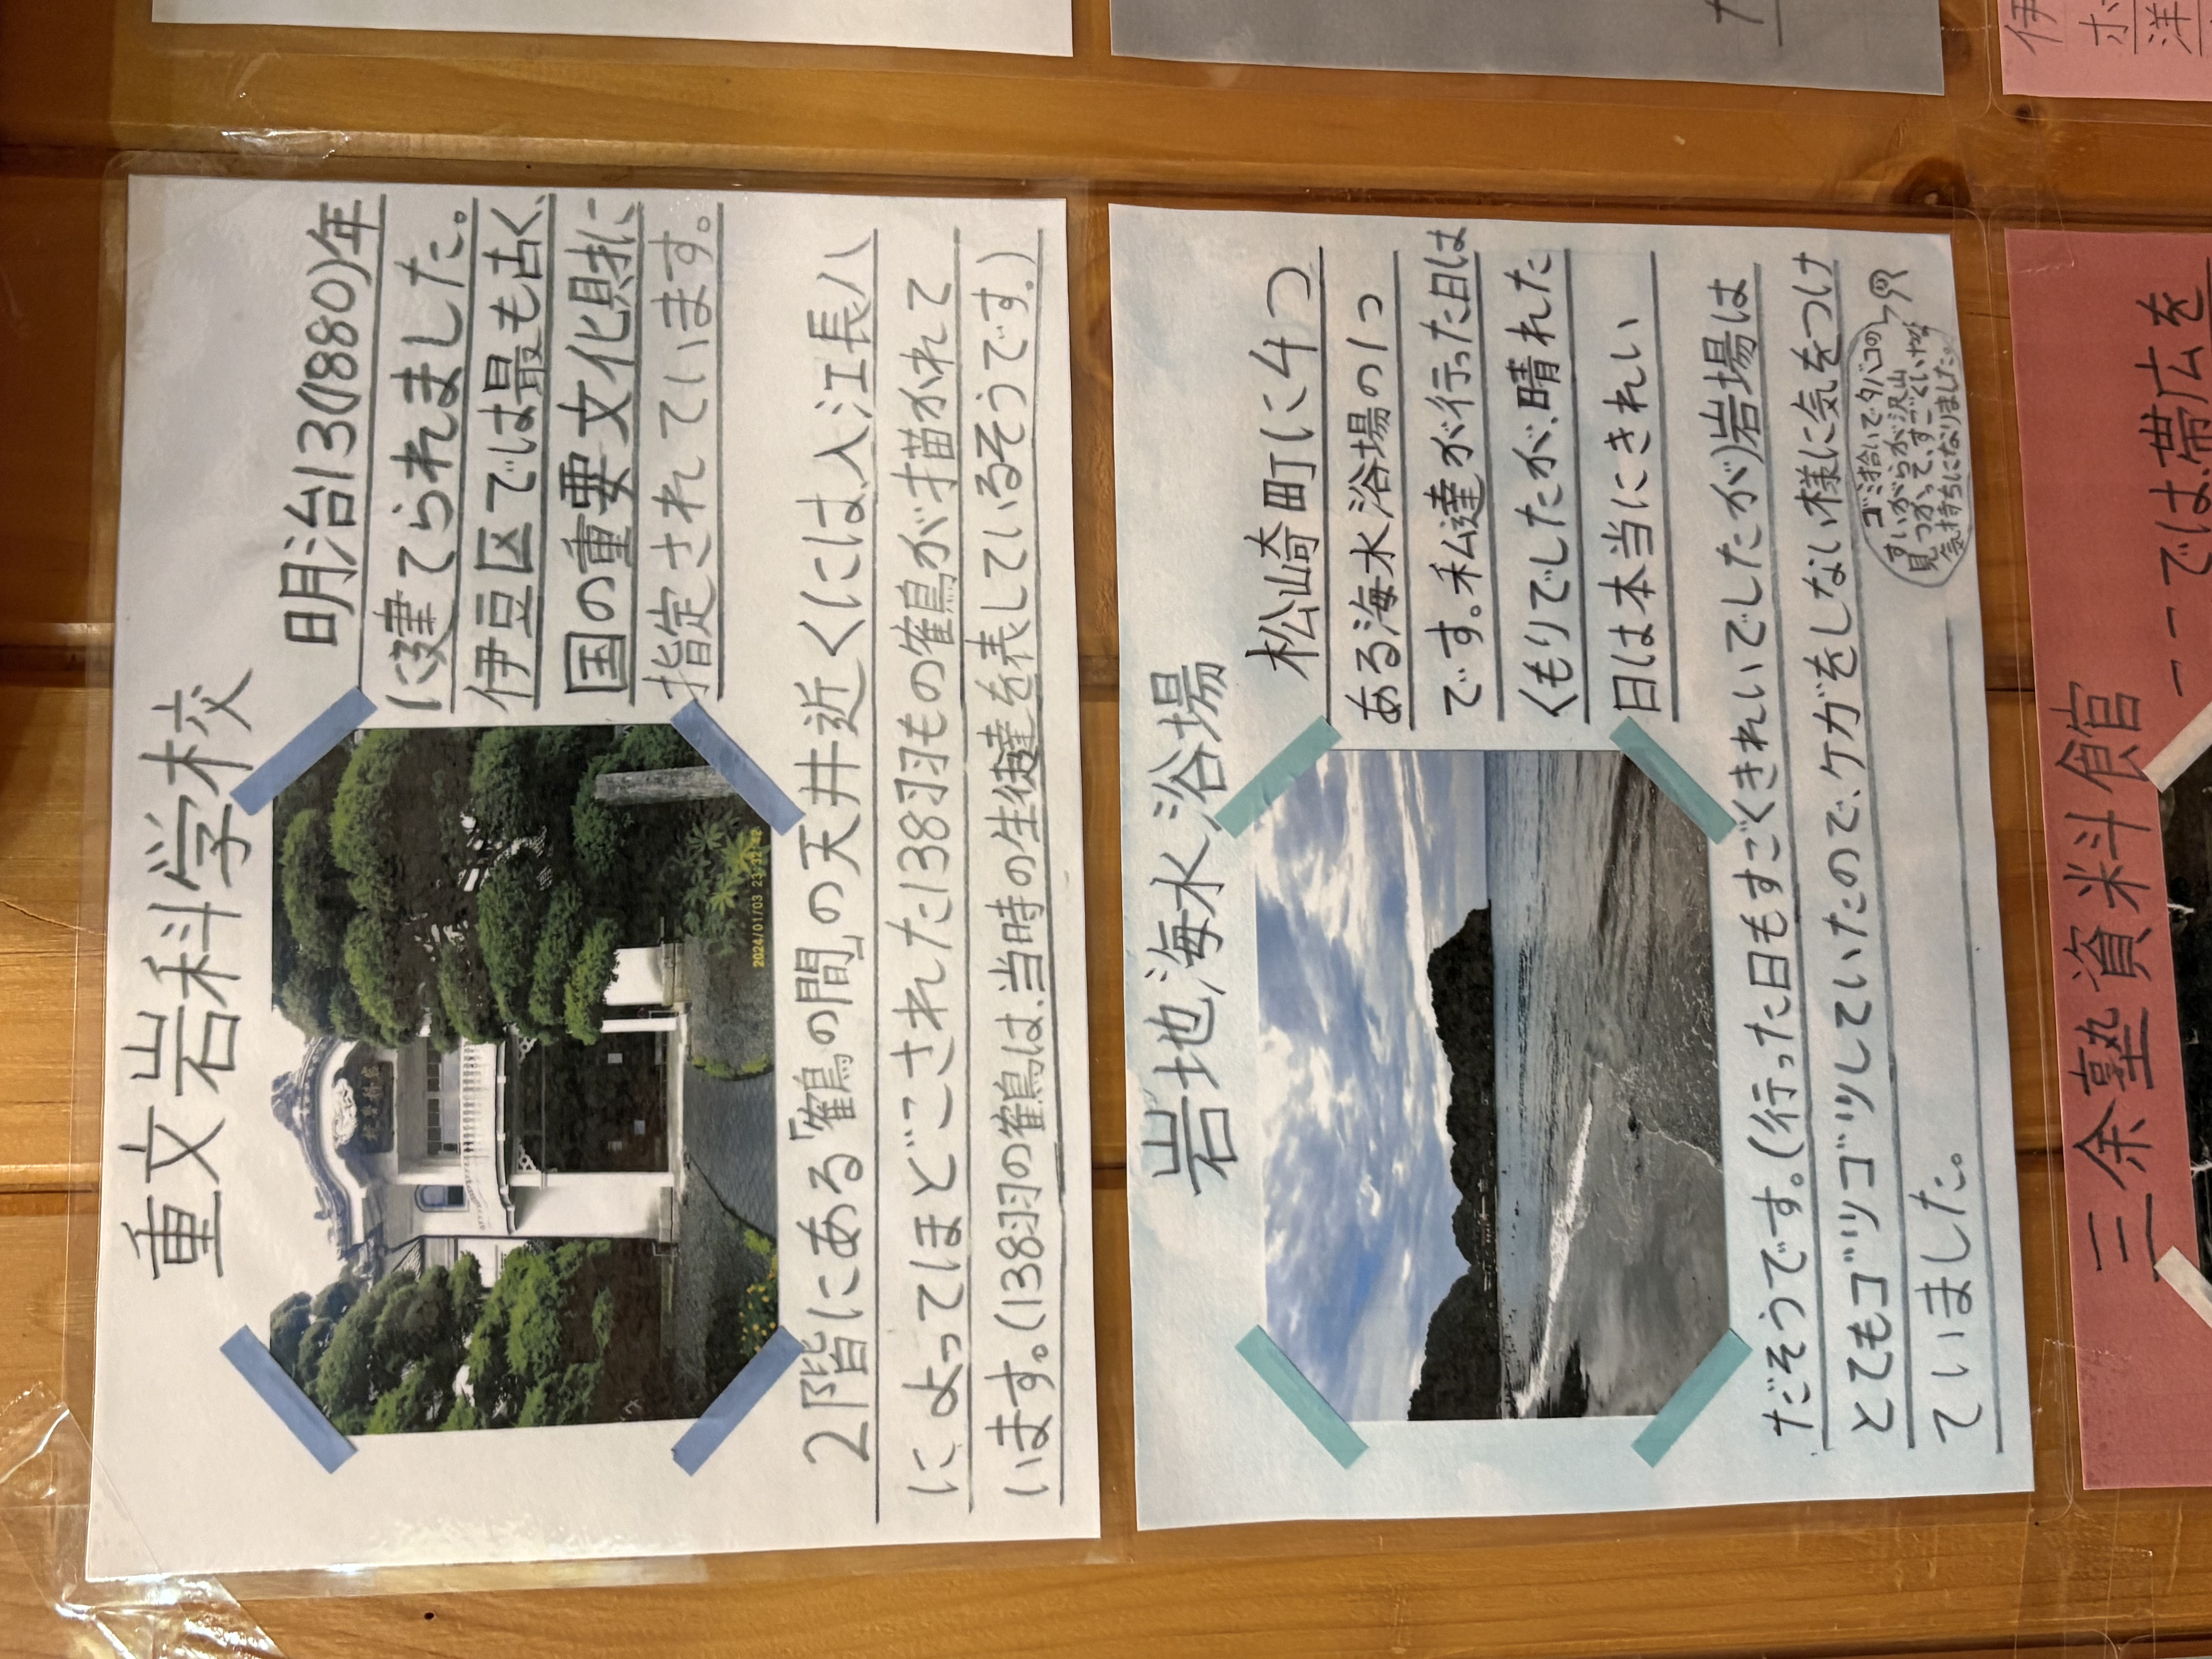 重文岩科学校
明治13(1880)年
に建てられました。
伊豆区では最も古く、
国の重要文化財に
指定されています。
2024/01/03 23:32:42
2階にある「鶴の間」の天井近くには、入江長八
によってほどこされた138羽もの鶴が描かれて
います。(138羽の鶴は、当時の生徒達を表しているそうです。)
岩地海水浴場
松崎町に4つ
ある海水浴場の1つ
です。私達が行った日は
くもりでしたが、晴れた
日は本当にきれい
だそうです。(行った日もすごくきれいでしたが)岩場は
とてもゴツゴツしていたので、ケガをしない様に気をつけ
ていました。
ゴミ拾いでタバコの
すいがらが沢山
見つかって、すごくいやな
気持ちになりました。
三余塾資料館
では、帯広を
伊
ホ
洋